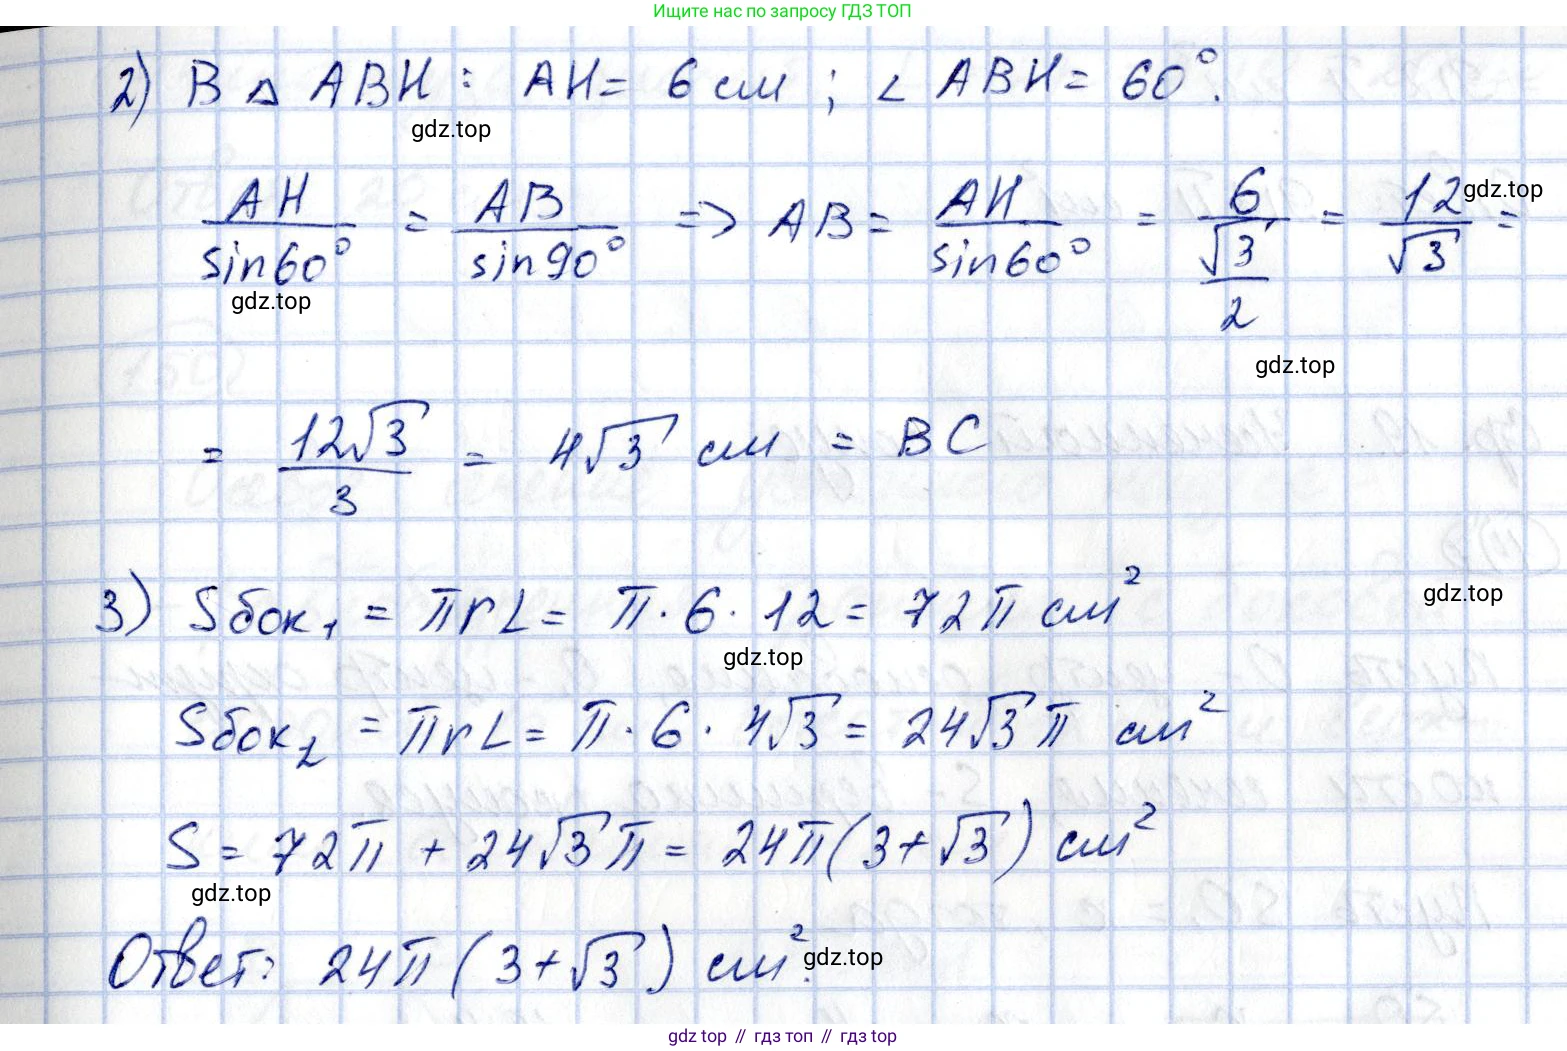 Ищите нас по запросу ГДЗ ТОП
2) В △ ABH : AH = 6 см ; ∠ ABH = 60°.
gdz.top
AH/sin60° = AB/sin90° => AB = AH/sin60° = 6/(√3/2) = 12/√3 =
gdz.top
gdz.top
gdz.top
= 12√3/3 = 4√3 см = BC
3) Sбок₁ = πrL = π · 6 · 12 = 72π см²
gdz.top
gdz.top
Sбок₂ = πrL = π · 6 · 4√3 = 24√3π см²
S = 72π + 24√3π = 24π(3+√3) см²
gdz.top
Ответ: 24π(3+√3) см².
gdz.top
gdz.top // гдз топ // гдз.top